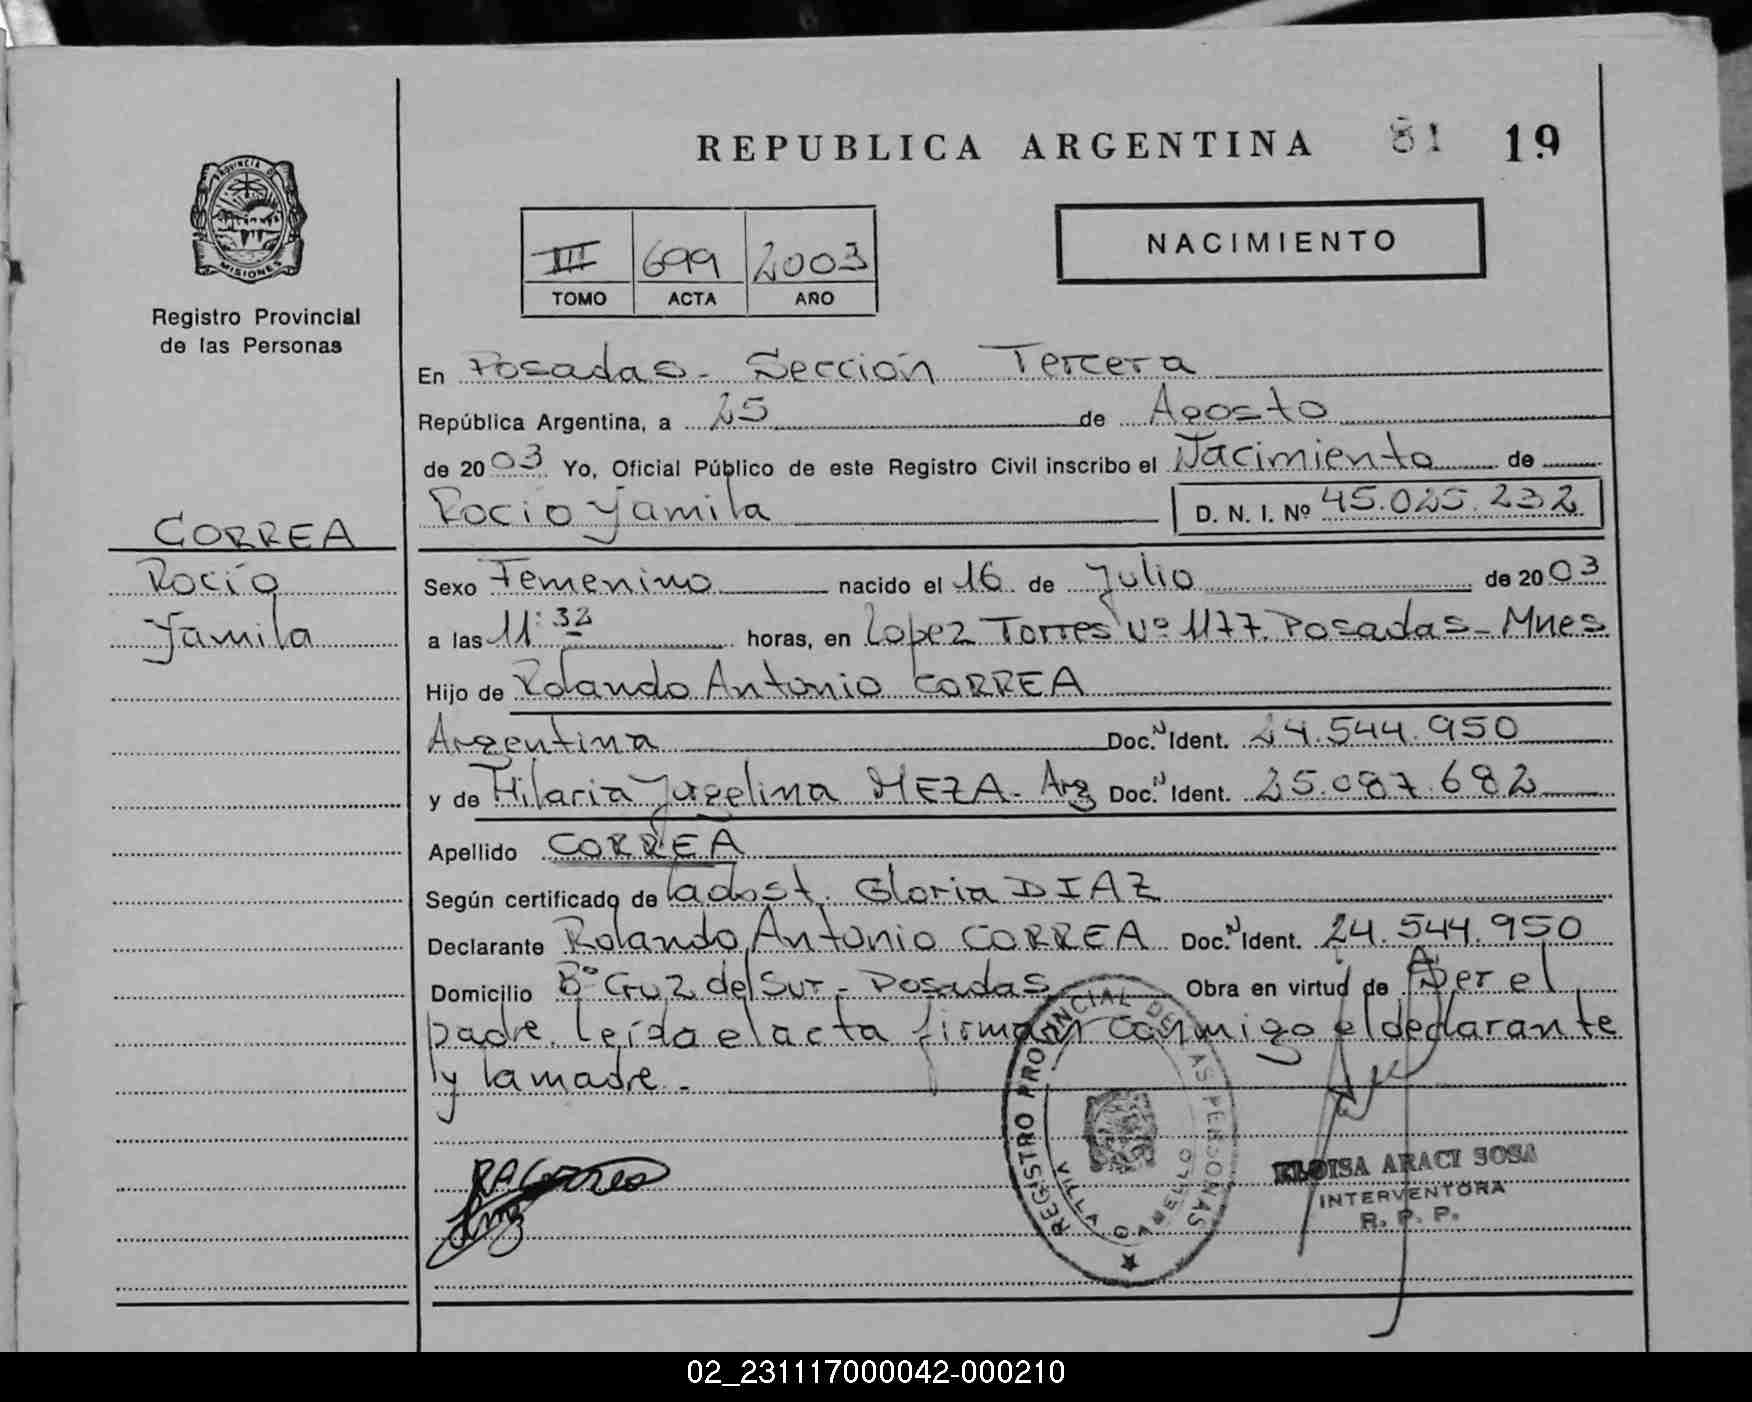 REPUBLICA ARGENTINA 81 19
PROVINCIA DE
MISIONES
Registro Provincial
de las Personas
III 699 2003
TOMO ACTA AÑO
NACIMIENTO
En Posadas - Sección Tercera
República Argentina, a 25 de Agosto
de 2003 Yo, Oficial Público de este Registro Civil inscribo el Nacimiento de
Rocio Yamila D. N. I. Nº 45.025.232
CORREA
Rocío
Yamila
Sexo Femenino nacido el 16 de Julio de 2003
a las 11:32 horas, en Lopez Torres Nº 1177. Posadas - Mnes
Hijo de Rolando Antonio CORREA
Argentina Doc. N Ident. 24.544.950
y de Hilaria MEZA - Arg Doc. N Ident. 25.087.682
Apellido CORREA
Según certificado de la obst. Gloria DIAZ
Declarante Rolando Antonio CORREA Doc. N Ident. 24.544.950
Domicilio Bº Cruz del Sur - Posadas Obra en virtud de Ser el
padre. leída el acta firman conmigo el declarante
y la madre. -
REGISTRO PROVINCIAL DE LAS PERSONAS
VILLA
RACorrea
ELOISA ARACI SOSA
INTERVENTORA
R. P. P.
02_231117000042-000210